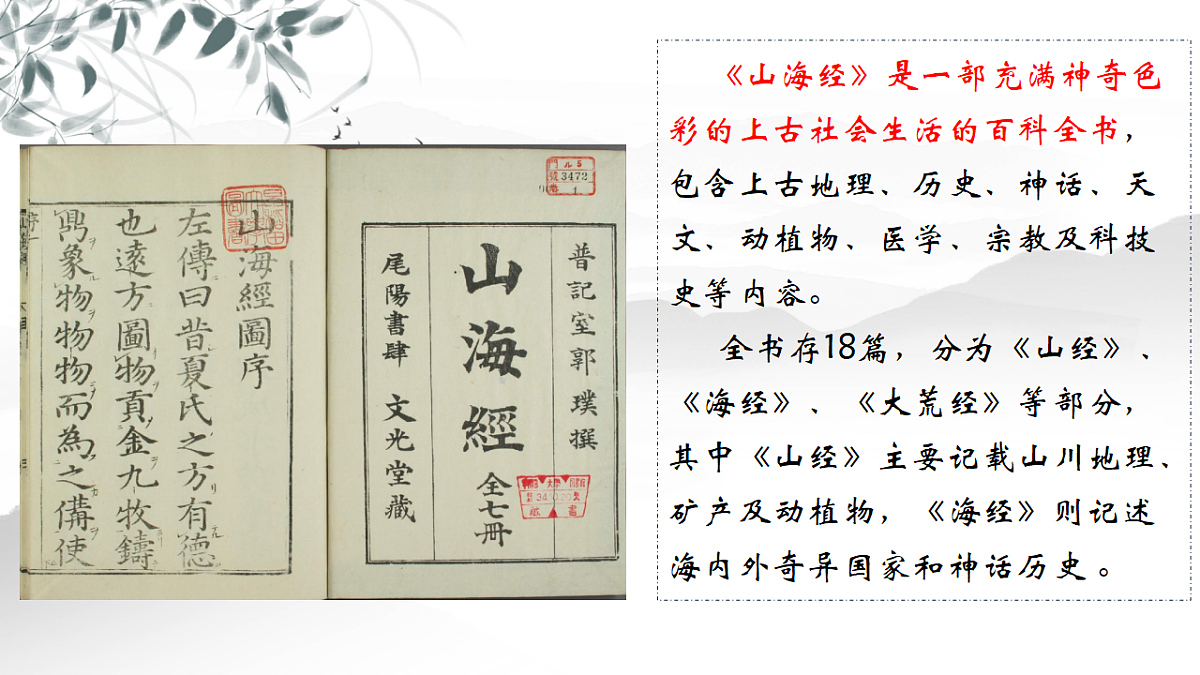 門 ル5
號 3472
卷 1
晉記室郭璞撰
山海經
全七冊
尾陽書肆 文光堂藏
山海經圖序
左傳曰昔夏氏之方有德
也遠方圖物貢金九牧鑄
鼎象物物物而為之備使
《山海经》是一部充满神奇色
彩的上古社会生活的百科全书，
包含上古地理、历史、神话、天
文、动植物、医学、宗教及科技
史等内容。
全书存18篇，分为《山经》、
《海经》、《大荒经》等部分，
其中《山经》主要记载山川地理、
矿产及动植物，《海经》则记述
海内外奇异国家和神话历史。